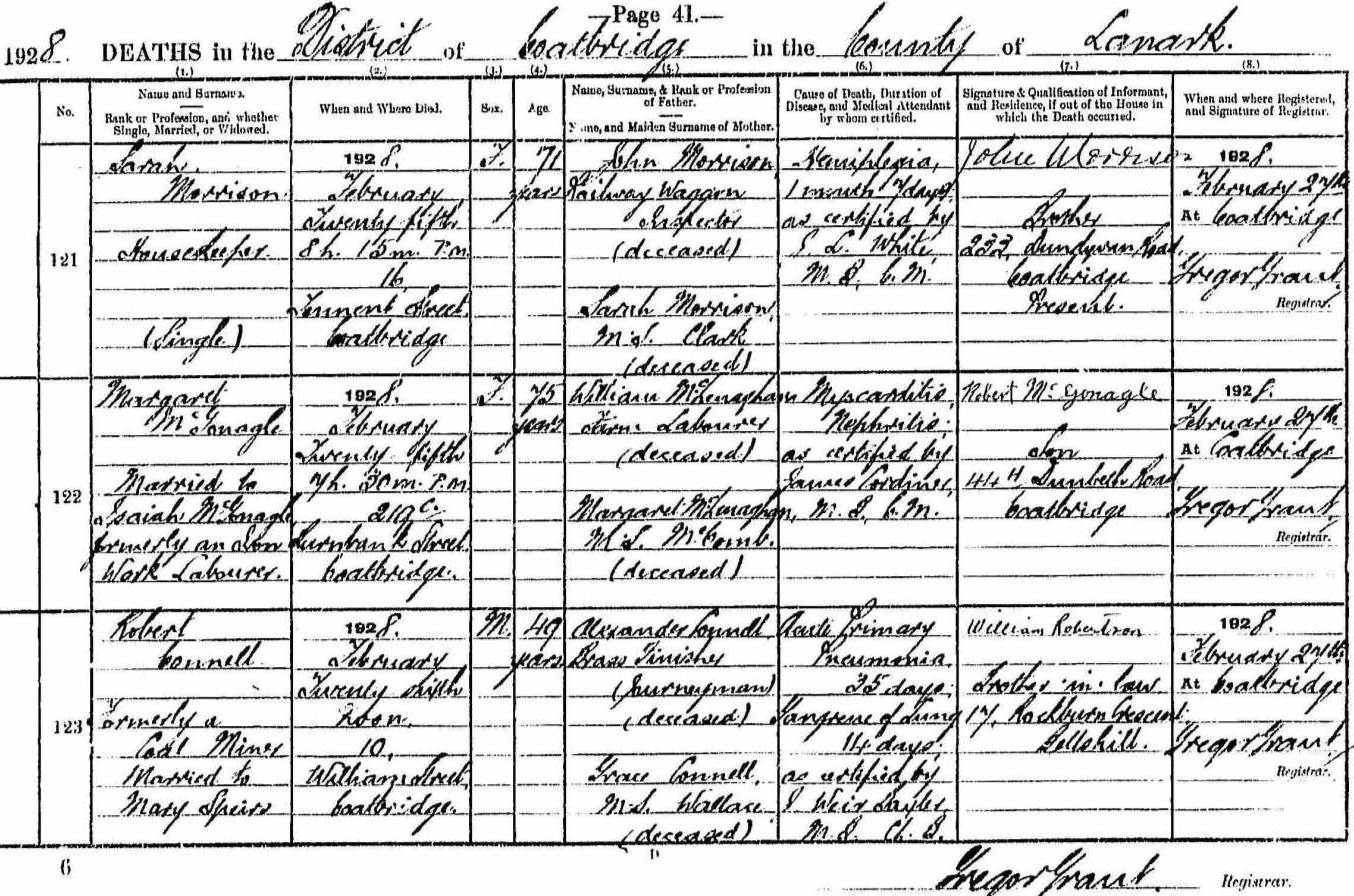 —Page 41.—
1928. DEATHS in the District of Coatbridge in the County of Lanark.
(1.) (2.) (3.) (4.) (5.) (6.) (7.) (8.)
No.
Name and Surname.
Rank or Profession, and whether Single, Married, or Widowed.
When and Where Died.
Sex.
Age.
Name, Surname, & Rank or Profession of Father.
Name, and Maiden Surname of Mother.
Cause of Death, Duration of Disease, and Medical Attendant by whom certified.
Signature & Qualification of Informant, and Residence, if out of the House in which the Death occurred.
When and where Registered, and Signature of Registrar.
121
Sarah
Morrison.
Housekeeper.
(Single)
1928.
February
Twenty fifth
8h. 15m. P.m.
16,
Tennent Street,
Coatbridge
F.
71
years
John Morrison,
Railway Waggon
Inspector
(deceased)
Sarah Morrison,
M.S. Clark
(deceased)
Hemiplegia,
1 month 7 days,
as certified by
L. White,
M.B., C.M.
John Morrison
Brother
Dundyvan Road,
Coatbridge
Present.
1928.
February 27th
At Coatbridge
Gregor Grant,
Registrar.
122
Margaret
McGonagle
Married to
Isaiah McGonagle
formerly an Iron
Work Labourer.
1928.
February
Twenty fifth
7h. 30m. P.m.
219c,
Burnbank Street,
Coatbridge.
F.
75
years
William McLenaghan
Farm Labourer
(deceased)
Margaret McLenaghan,
M.S. McComb.
(deceased)
Myocarditis,
Nephritis,
as certified by
James Cordiner,
M.B., C.M.
Robert McGonagle
Son
Dunbeth Road,
Coatbridge
1928.
February 27th
At Coatbridge
Gregor Grant,
Registrar.
123
Robert
Connell
Formerly a
Coal Miner
Married to
Mary Speirs
1928.
February
Twenty sixth
Noon.
10,
William Street,
Coatbridge.
M.
49
years
Alexander Connell
Brass Finisher
(Journeyman)
(deceased)
Grace Connell,
M.S. Wallace
(deceased)
Acute Primary
Pneumonia,
35 days,
Gangrene of Lung
14 days,
as certified by
Weir
M.B. Ch.B.
William Robertson
Brother-in-law
17, Rockburn Crescent,
Bellshill.
1928.
February 27th
At Coatbridge
Gregor Grant,
Registrar.
6
Gregor Grant. Registrar.